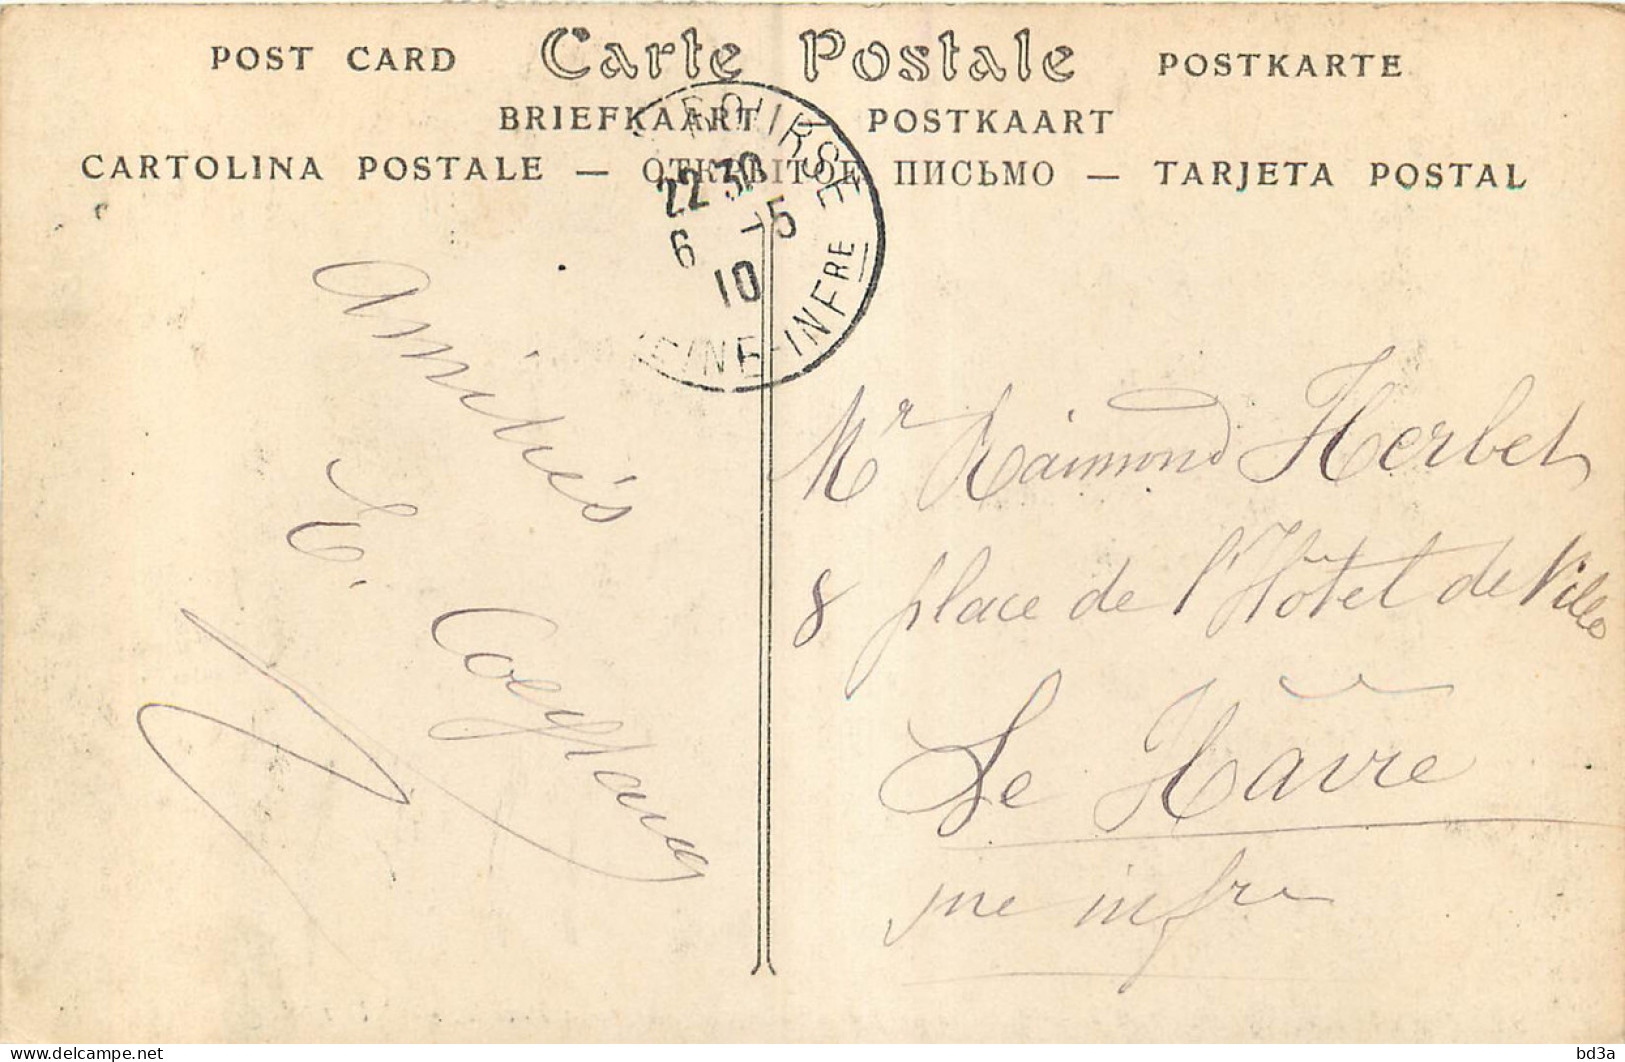 POST CARD Carte Postale POSTKARTE
BRIEFKAART POSTKAART
CARTOLINA POSTALE — ОТКРЫТОЕ ПИСЬМО — TARJETA POSTAL
22 30
6 -5
10
SEINE-INFRE
Amitiés
E.
Mr Raimond Herbet
8 place de l'Hôtel de Ville
Le Hâvre
ne infre
delcampe.net
bd3a